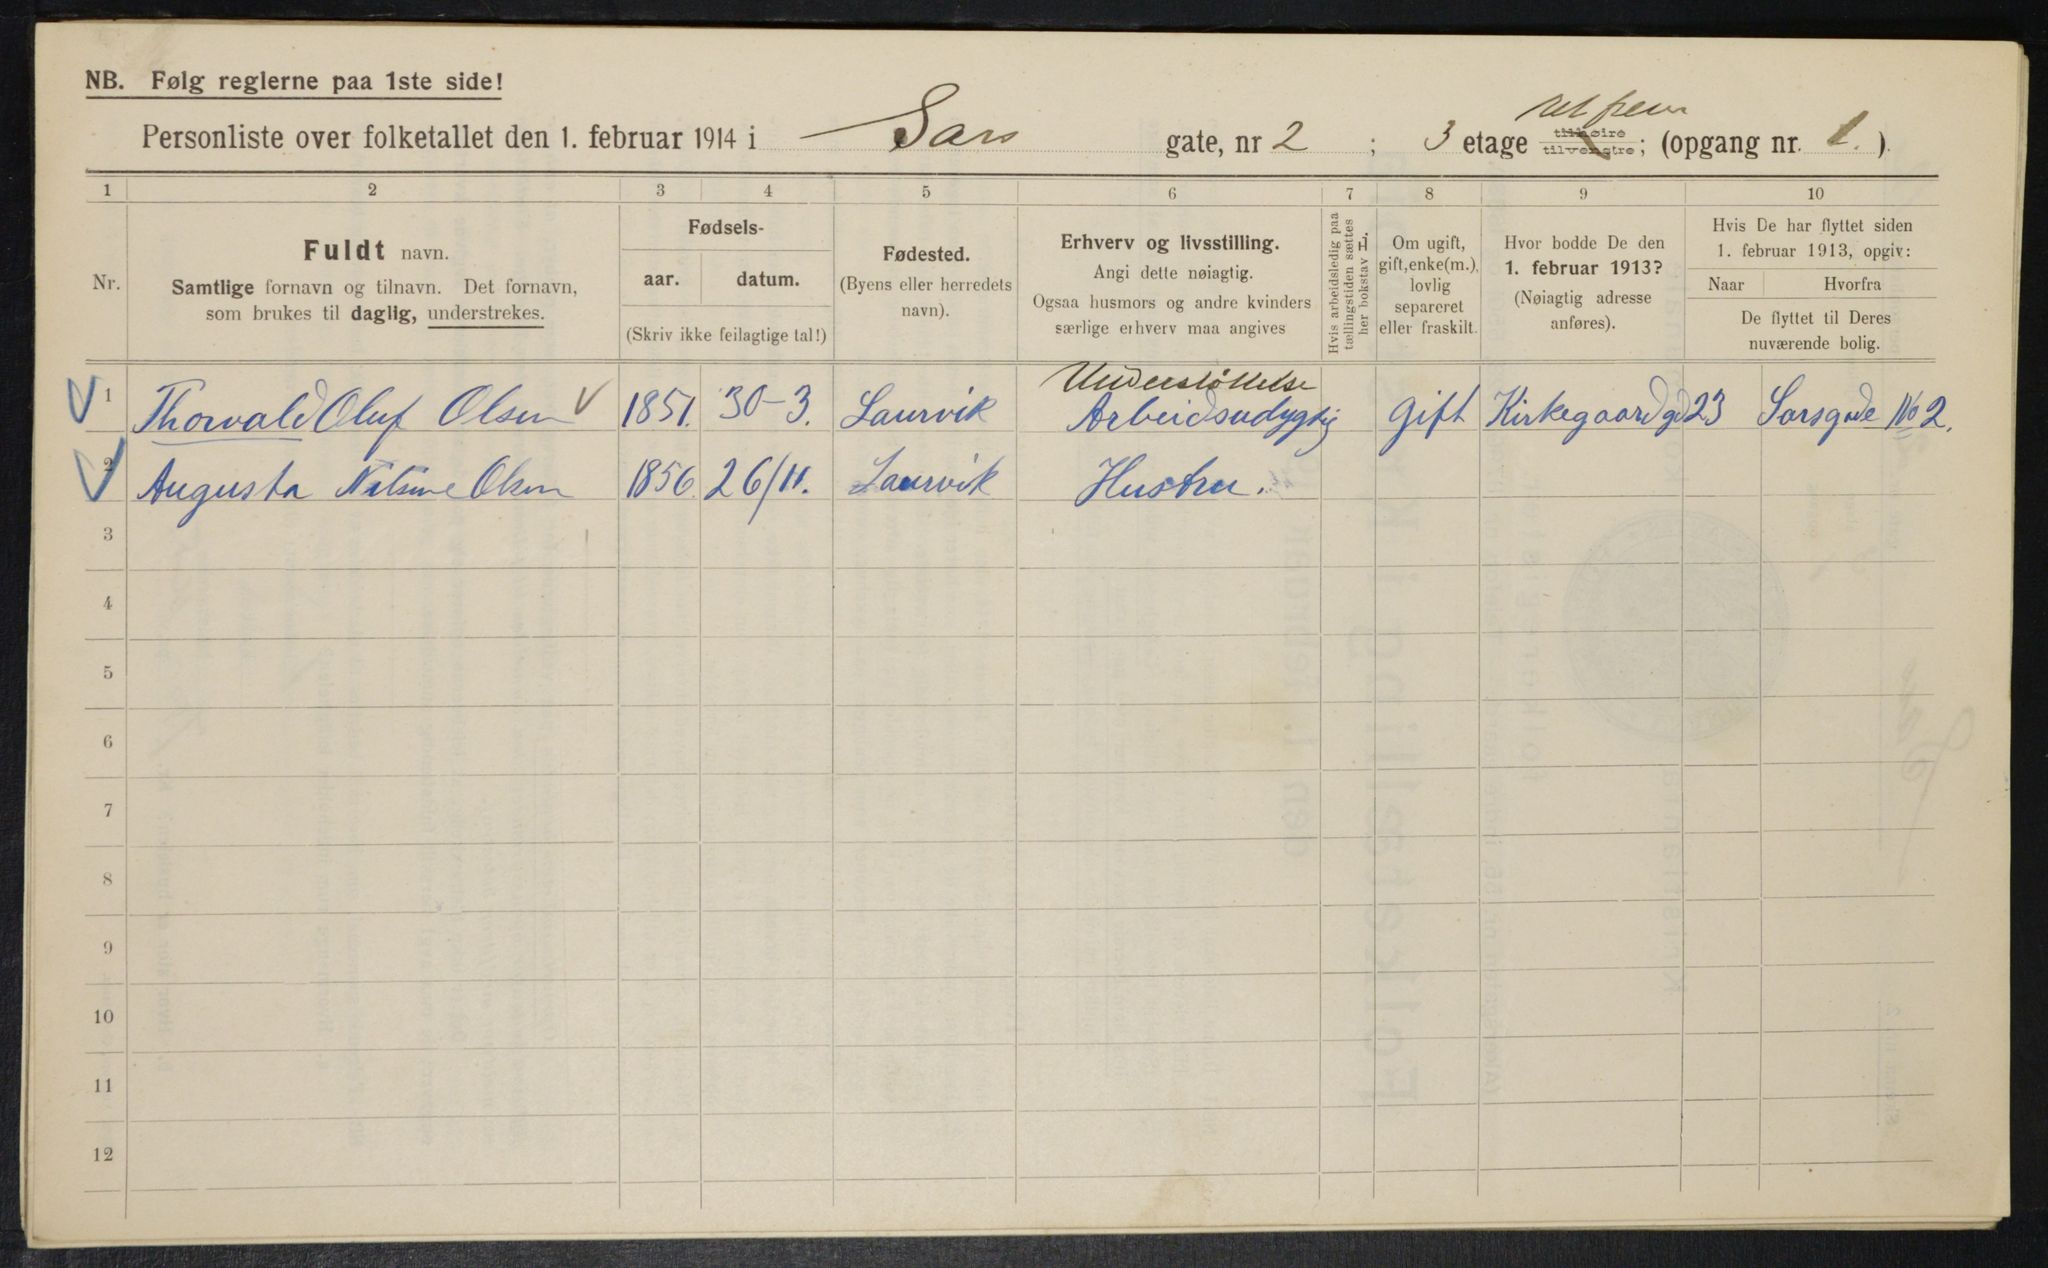 NB. Følg reglerne paa 1ste side!
Personliste over folketallet den 1. februar 1914 i Sars gate, nr 2 ; 3 etage tilhøire tilvenstre; (opgang nr. 1.).
1 2 3 4 5 6 7 8 9 10
Nr.
Fuldt navn.
Samtlige fornavn og tilnavn. Det fornavn,
som brukes til daglig, understrekes.
Fødsels-
aar. datum.
(Skriv ikke feilagtige tal!)
Fødested.
(Byens eller herredets
navn).
Erhverv og livsstilling.
Angi dette nøiagtig.
Ogsaa husmors og andre kvinders
særlige erhverv maa angives
Hvis arbeidsledig paa
tællingstiden sættes
her bokstav L.
Om ugift,
gift, enke(m.),
lovlig
separeret
eller fraskilt.
Hvor bodde De den
1. februar 1913?
(Nøiagtig adresse
anføres).
Hvis De har flyttet siden
1. februar 1913, opgiv:
Naar Hvorfra
De flyttet til Deres
nuværende bolig.
Understøttelse
1 Thorvald Oluf Olsen 1851. 30-3. Laurvik Arbeidsudygtig Gift Kirkegaardgd 23 Sarsgade No 2.
2 Augusta Olsen 1856. 26/11. Laurvik Hustru.
3
4
5
6
7
8
9
10
11
12